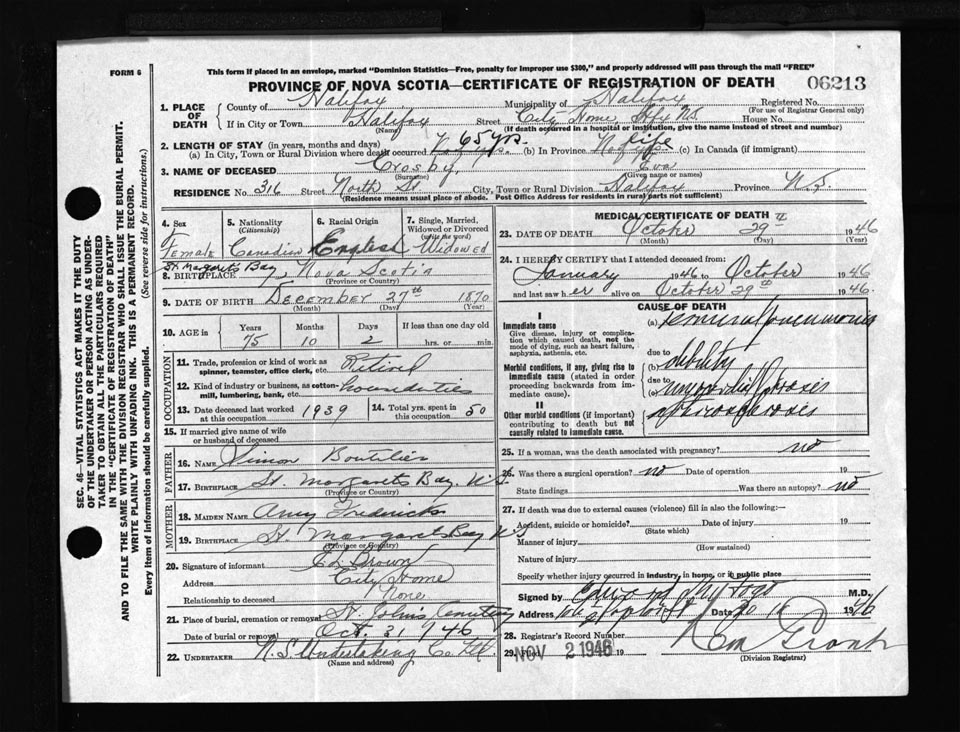 FORM 6
This form if placed in an envelope, marked "Dominion Statistics—Free, penalty for improper use $300," and properly addressed will pass through the mail "FREE"
PROVINCE OF NOVA SCOTIA—CERTIFICATE OF REGISTRATION OF DEATH
06213
1. PLACE OF DEATH County of Halifax Municipality of Halifax Registered No.
(For use of Registrar General only)
If in City or Town Halifax Street City Home, Hfx N.S. House No.
(Name) (If death occurred in a hospital or institution, give the name instead of street and number)
2. LENGTH OF STAY (in years, months and days)
(a) In City, Town or Rural Division where death occurred 65 yrs. (b) In Province life (c) In Canada (if immigrant)
3. NAME OF DECEASED Crosby, Eva
(Surname) (Given name or names)
RESIDENCE No. 316 Street North St City, Town or Rural Division Halifax Province N.S.
(Residence means usual place of abode. Post Office Address for residents in rural parts not sufficient)
4. Sex Female
5. Nationality (Citizenship) Canadian
6. Racial Origin English
7. Single, Married, Widowed or Divorced (write the word) Widowed
8. BIRTHPLACE St. Margarets Bay, Nova Scotia
(Province or Country)
9. DATE OF BIRTH December 27th 1870
(Month) (Day) (Year)
10. AGE in Years 75 Months 10 Days 2 If less than one day old hrs. or min.
OCCUPATION
11. Trade, profession or kind of work as spinner, teamster, office clerk, etc. Retired
12. Kind of industry or business, as cotton-mill, lumbering, bank, etc.
13. Date deceased last worked at this occupation 1939
14. Total yrs. spent in this occupation 50
15. If married give name of wife or husband of deceased
FATHER
16. NAME Simon Boutilier
17. BIRTHPLACE St. Margarets Bay, N.S.
(Province or Country)
MOTHER
18. MAIDEN NAME Amy Fredericks
19. BIRTHPLACE St. Margarets Bay N.S
(Province or Country)
20. Signature of informant Brown
Address City Home
Relationship to deceased None
21. Place of burial, cremation or removal St. John's Cemetery
Date of burial or removal Oct. 31 / 46
22. UNDERTAKER N.S. Undertaking Co. Ltd.
(Name and address)
MEDICAL CERTIFICATE OF DEATH
23. DATE OF DEATH October 29th 1946
(Month) (Day) (Year)
24. I HEREBY CERTIFY that I attended deceased from:
January 1946 to October 1946
and last saw her alive on October 29th 1946.
CAUSE OF DEATH
I
Immediate cause
Give disease, injury or complication which caused death, not the mode of dying, such as heart failure, asphyxia, asthenia, etc.
(a)
due to
Morbid conditions, if any, giving rise to immediate cause (stated in order proceeding backwards from immediate cause).
(b) debility
due to
(c)
II
Other morbid conditions (if important) contributing to death but not causally related to immediate cause.
25. If a woman, was the death associated with pregnancy? no
26. Was there a surgical operation? no Date of operation 19
State findings Was there an autopsy? no
27. If death was due to external causes (violence) fill in also the following:—
Accident, suicide or homicide? Date of injury 19
(State which)
Manner of injury
(How sustained)
Nature of injury
Specify whether injury occurred in industry, in home, or in public place
Signed by M.D.
Address Date 30 1946
28. Registrar's Record Number
29. Filed NOV 2 1946 19
(Division Registrar)
SEC. 46—VITAL STATISTICS ACT MAKES IT THE DUTY
OF THE UNDERTAKER OR PERSON ACTING AS UNDERTAKER TO OBTAIN ALL THE PARTICULARS REQUIRED
IN THE "CERTIFICATE OF REGISTRATION OF DEATH"
AND TO FILE THE SAME WITH THE DIVISION REGISTRAR WHO SHALL ISSUE THE BURIAL PERMIT.
WRITE PLAINLY WITH UNFADING INK. THIS IS A PERMANENT RECORD.
Every item of information should be carefully supplied. (See reverse side for instructions.)